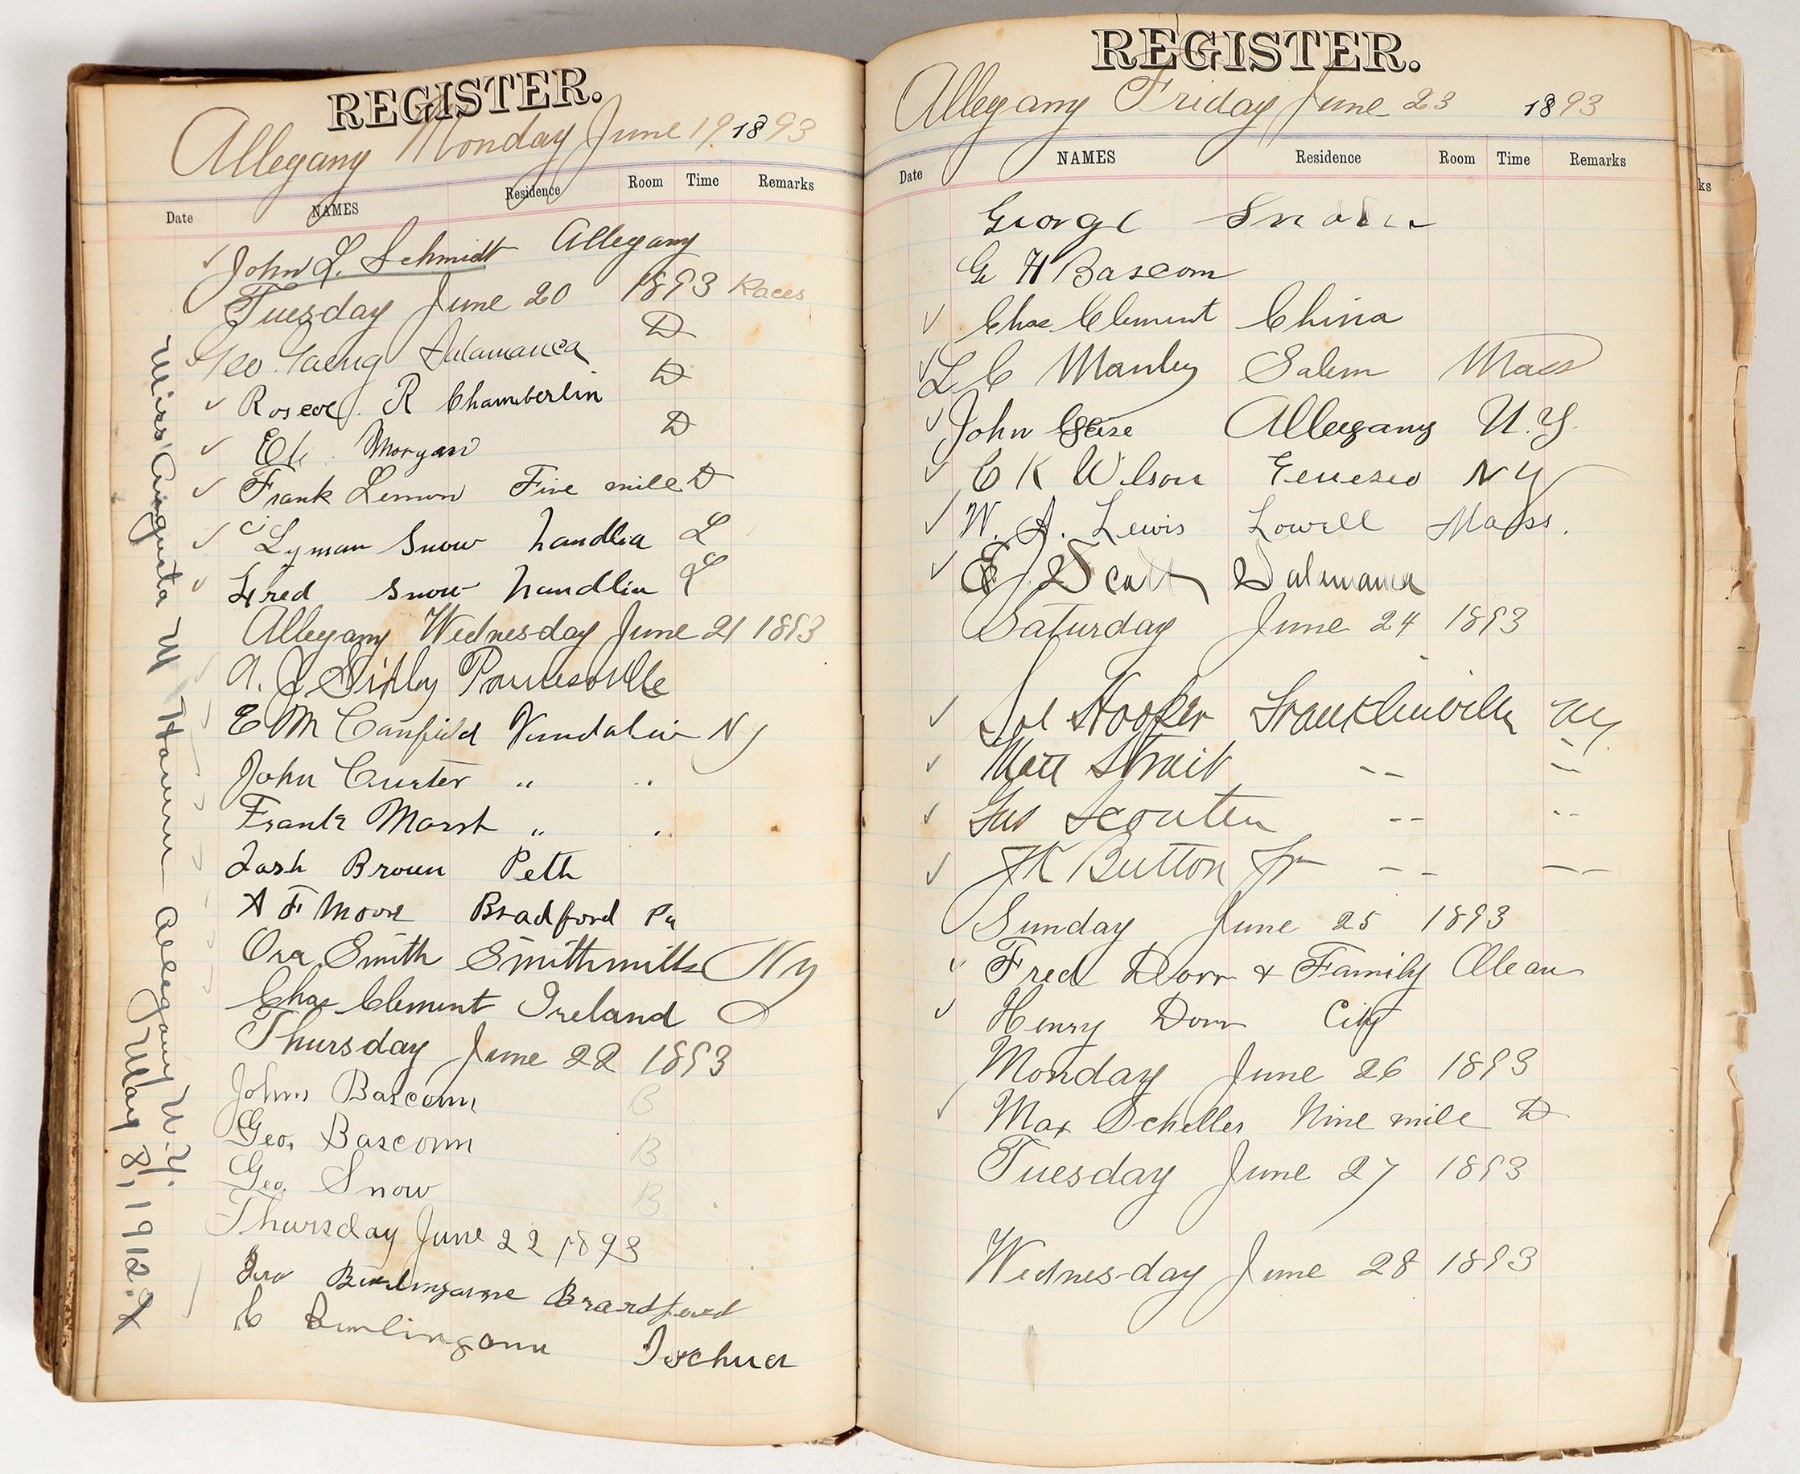 REGISTER.
Allegany Monday June 19, 1893
Date NAMES Residence Room Time Remarks
John L. Schmidt Allegany
Tuesday June 20 1893 Races
Geo Salamanca D
Roscoe R Chamberlin D
Morgan D
Frank Lemon Five mile D
Lyman Snow L
Fred Snow L
Allegany Wednesday June 21 1893
A. J.
E M Canfield Vandalia NY
John Custer " "
Frank Marsh " "
Zash Brown Peth
A F Moore Bradford Pa
Ora Smith Smithmills NY
Chas Clement Ireland
Thursday June 22 1893
John Bascom B
Geo. Bascom B
Geo. Snow B
Thursday June 22 1893
Burlingame Bradford
C Burlingame Ischua
Miss Augusta M Allegany N.Y.
May 8, 1912.
REGISTER.
Allegany Friday June 23 1893
Date NAMES Residence Room Time Remarks
George Snow
G H Bascom
Chas Clement China
L C Manley Salem Mass
John Allegany N.Y.
C K Wilson Geneseo NY
W. A. Lewis Lowell Mass.
E J Scott Salamanca
Saturday June 24 1893
Sol Hooker Franklinville NY
Matt Strait -- --
Gus Scouten -- --
Button Jr -- --
Sunday June 25 1893
Fred Dorr & Family Olean
Henry Dorr City
Monday June 26 1893
Max Scheller Nine mile D
Tuesday June 27 1893
Wednesday June 28 1893
ks